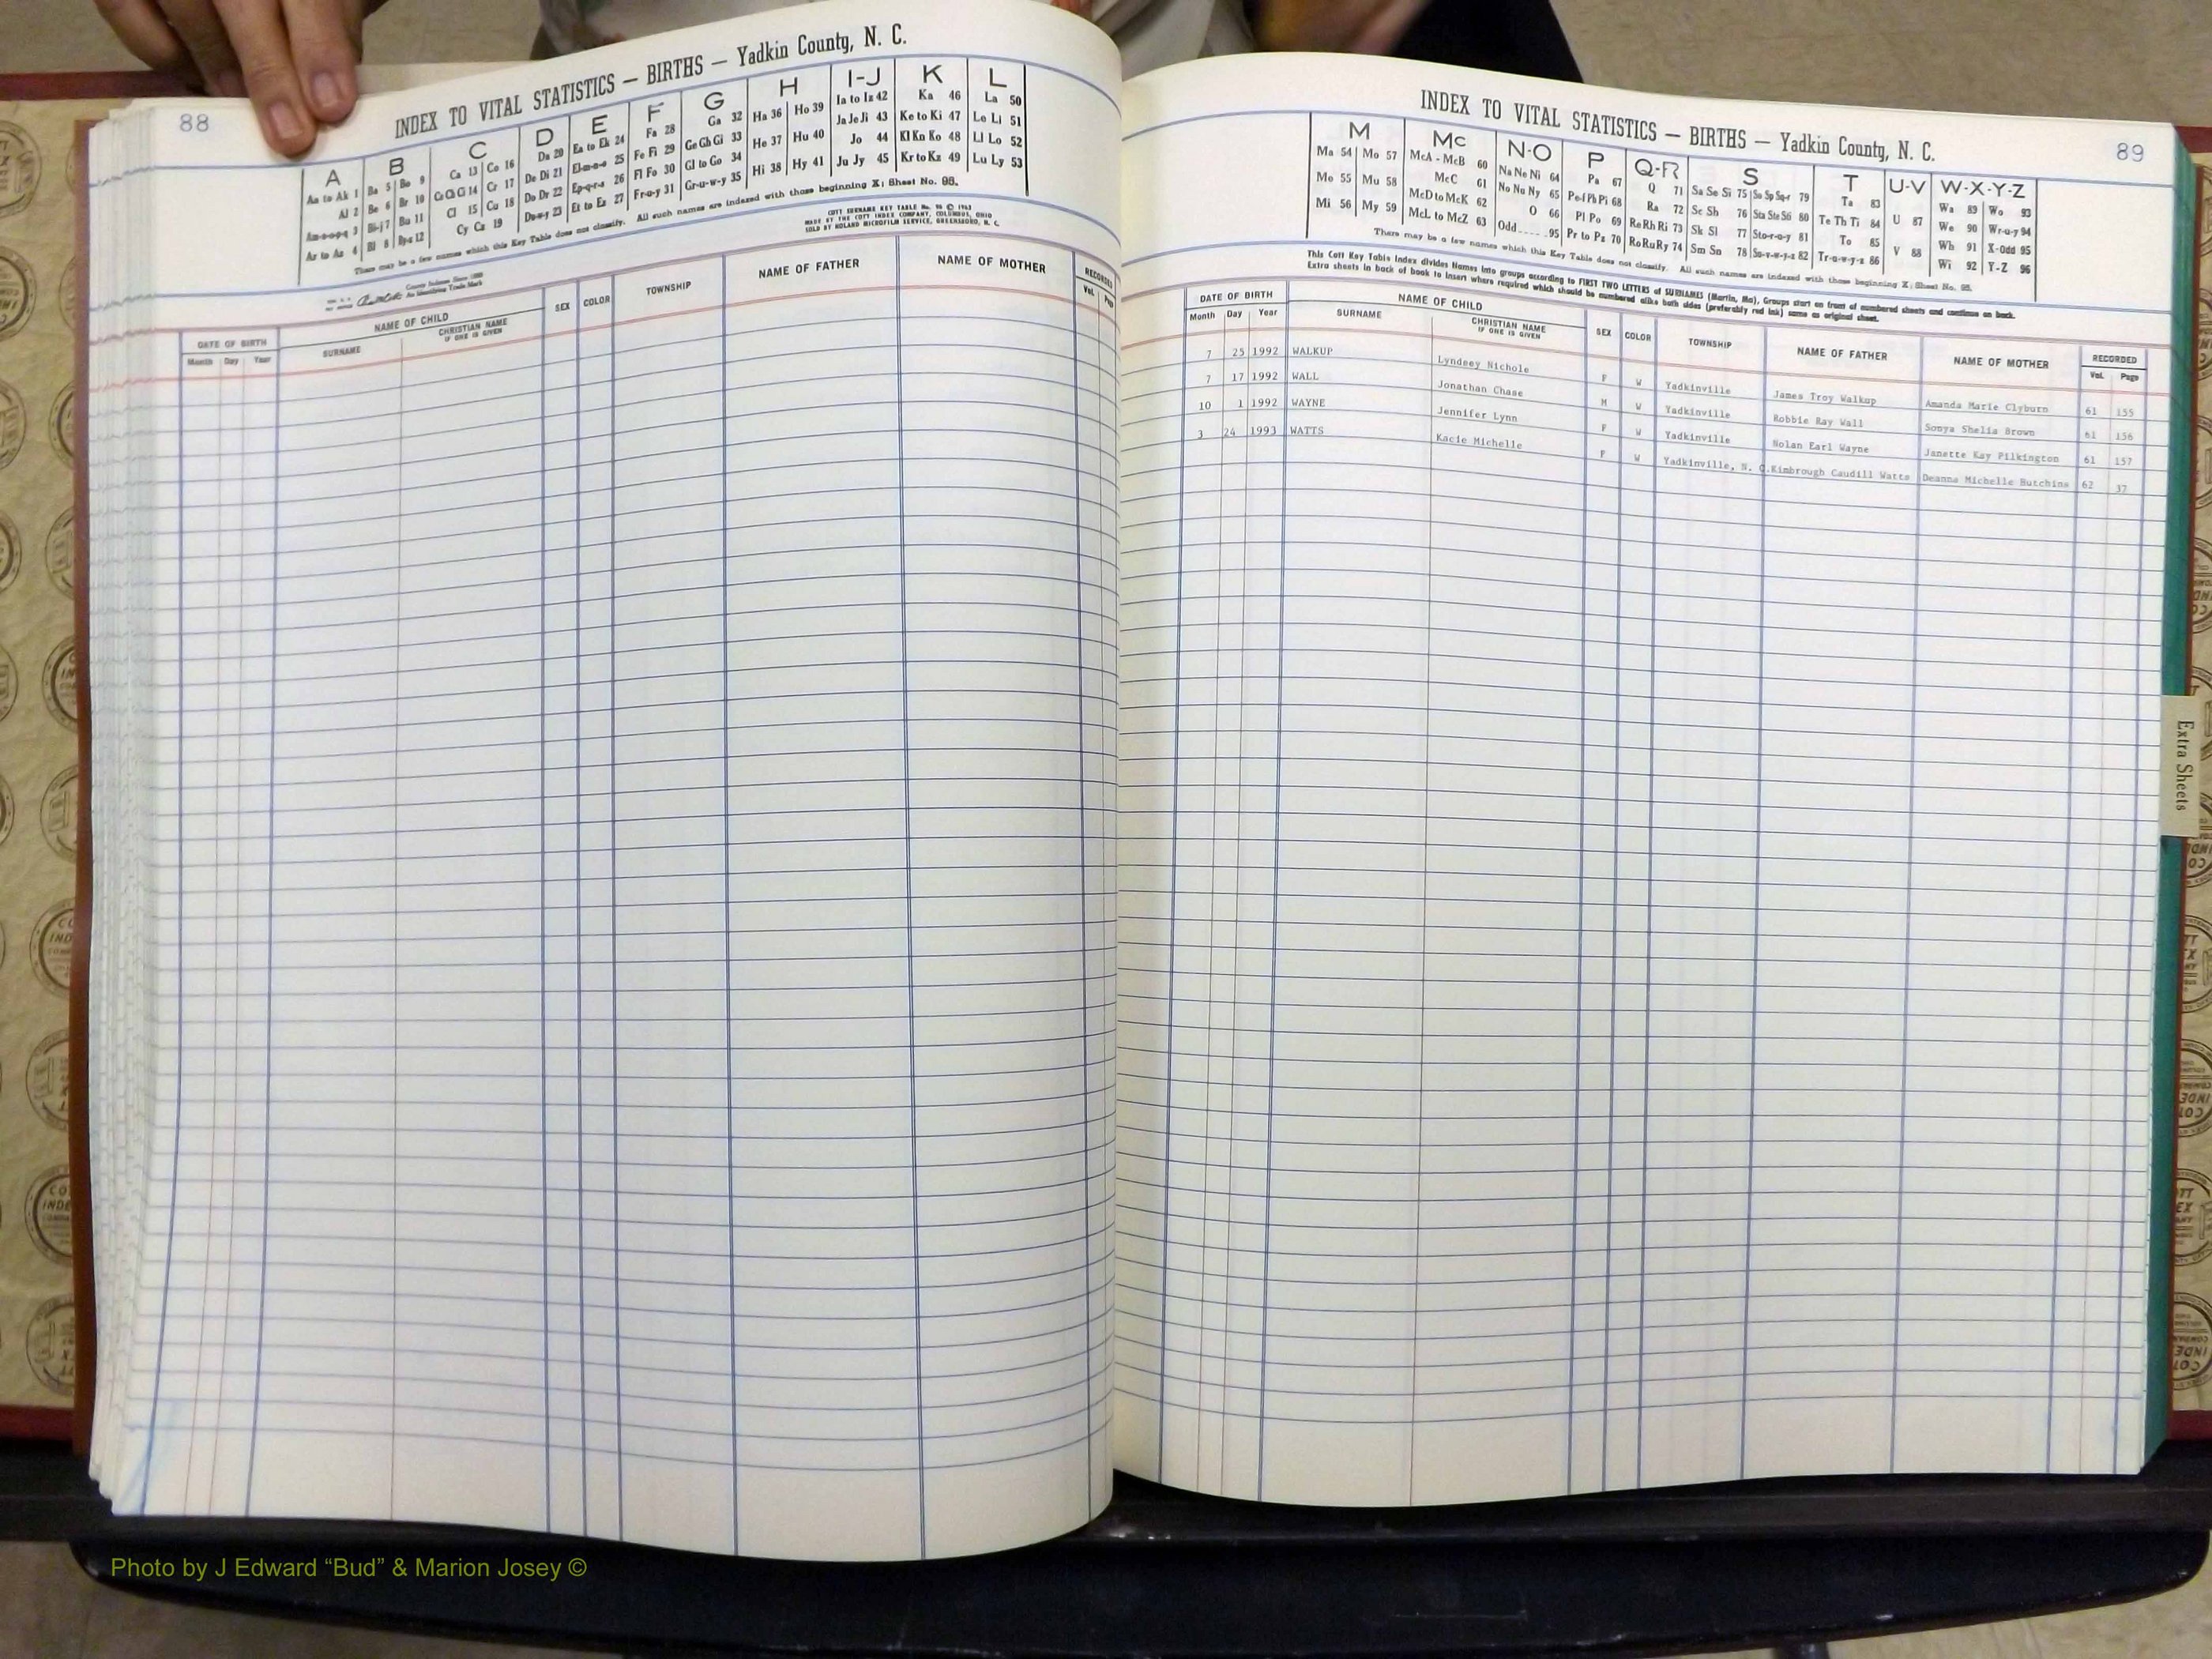 88
INDEX TO VITAL STATISTICS — BIRTHS — Yadkin County, N. C.
A B C D E F G H I-J K L
Aa to Ak 1 Ba 5 Bo 9 Ca 13 Co 16 Da 20 Ea to Ek 24 Fa 28 Ga 32 Ha 36 Ho 39 Ia to Iz 42 Ka 46 La 50
Al 2 Be 6 Br 10 Ce Ch Ci 14 Cr 17 De Di 21 El-m-n-o 25 Fe Fi 29 Ge Gh Gi 33 He 37 Hu 40 Ja Je Ji 43 Ke to Ki 47 Le Li 51
Am-n-o-p-q 3 Bi-j 7 Bu 11 Cl 15 Cu 18 Do Dr 22 Ep-q-r-s 26 Fl Fo 30 Gl to Go 34 Hi 38 Hy 41 Jo 44 Kl Kn Ko 48 Ll Lo 52
Ar to Az 4 Bl 8 By-z 12 Cy Cz 19 Du-w-y 23 Et to Ez 27 Fr-u-y 31 Gr-u-w-y 35 Ju Jy 45 Kr to Kz 49 Lu Ly 53
There may be a few names which this Key Table does not classify. All such names are indexed with those beginning X; Sheet No. 95.
MADE BY THE COTT INDEX COMPANY, COLUMBUS, OHIO
SOLD BY ROLAND MICROFILM SERVICE, GREENSBORO, N. C.
DATE OF BIRTH NAME OF CHILD SEX COLOR TOWNSHIP NAME OF FATHER NAME OF MOTHER RECORDED
Month Day Year SURNAME CHRISTIAN NAME IF ONE IS GIVEN Vol.
INDEX TO VITAL STATISTICS — BIRTHS — Yadkin County, N. C.
89
M Mc N-O P Q-R S T U-V W-X-Y-Z
Ma 54 Mo 57 McA - McB 60 Na Ne Ni 64 Pa 67 Q 71 Sa Se Si 75 So Sp Sq-r 79 Ta 83 U 87 Wa 89 Wo 93
Me 55 Mu 58 McC 61 No Nu Ny 65 Pe-f Ph Pi 68 Ra 72 Sc Sh 76 Sta Ste Sti 80 Te Th Ti 84 V 88 We 90 Wr-u-y 94
Mi 56 My 59 McD to McK 62 O 66 Pl Po 69 Re Rh Ri 73 Sk Sl 77 Sto-r-u-y 81 To 85 Wh 91 X-Odd 95
McL to McZ 63 Odd 95 Pr to Pz 70 Ro Ru Ry 74 Sm Sn 78 Su-v-w-y-z 82 Tr-u-w-y-z 86 Wi 92 Y-Z 96
There may be a few names which this Key Table does not classify. All such names are indexed with those beginning X; Sheet No. 95.
This Cott Key Table Index divides Names into groups according to FIRST TWO LETTERS of SURNAMES (Martin, Ma), Groups start on front of numbered sheets and continue on back.
Extra sheets in back of book to insert where required which should be numbered alike both sides (preferably red ink) same as original sheet.
DATE OF BIRTH NAME OF CHILD SEX COLOR TOWNSHIP NAME OF FATHER NAME OF MOTHER RECORDED
Month Day Year SURNAME CHRISTIAN NAME IF ONE IS GIVEN Vol. Page
7 25 1992 WALKUP Lyndsey Nichole F W Yadkinville James Troy Walkup Amanda Marie Clyburn 61 155
7 17 1992 WALL Jonathan Chase M W Yadkinville Robbie Ray Wall Sonya Shelia Brown 61 156
10 1 1992 WAYNE Jennifer Lynn F W Yadkinville Nolan Earl Wayne Janette Kay Pilkington 61 157
3 24 1993 WATTS Kacie Michelle F W Yadkinville, N. C. Kimbrough Caudill Watts Deanna Michelle Hutchins 62 37
Extra Sheets
Photo by J Edward “Bud” & Marion Josey ©